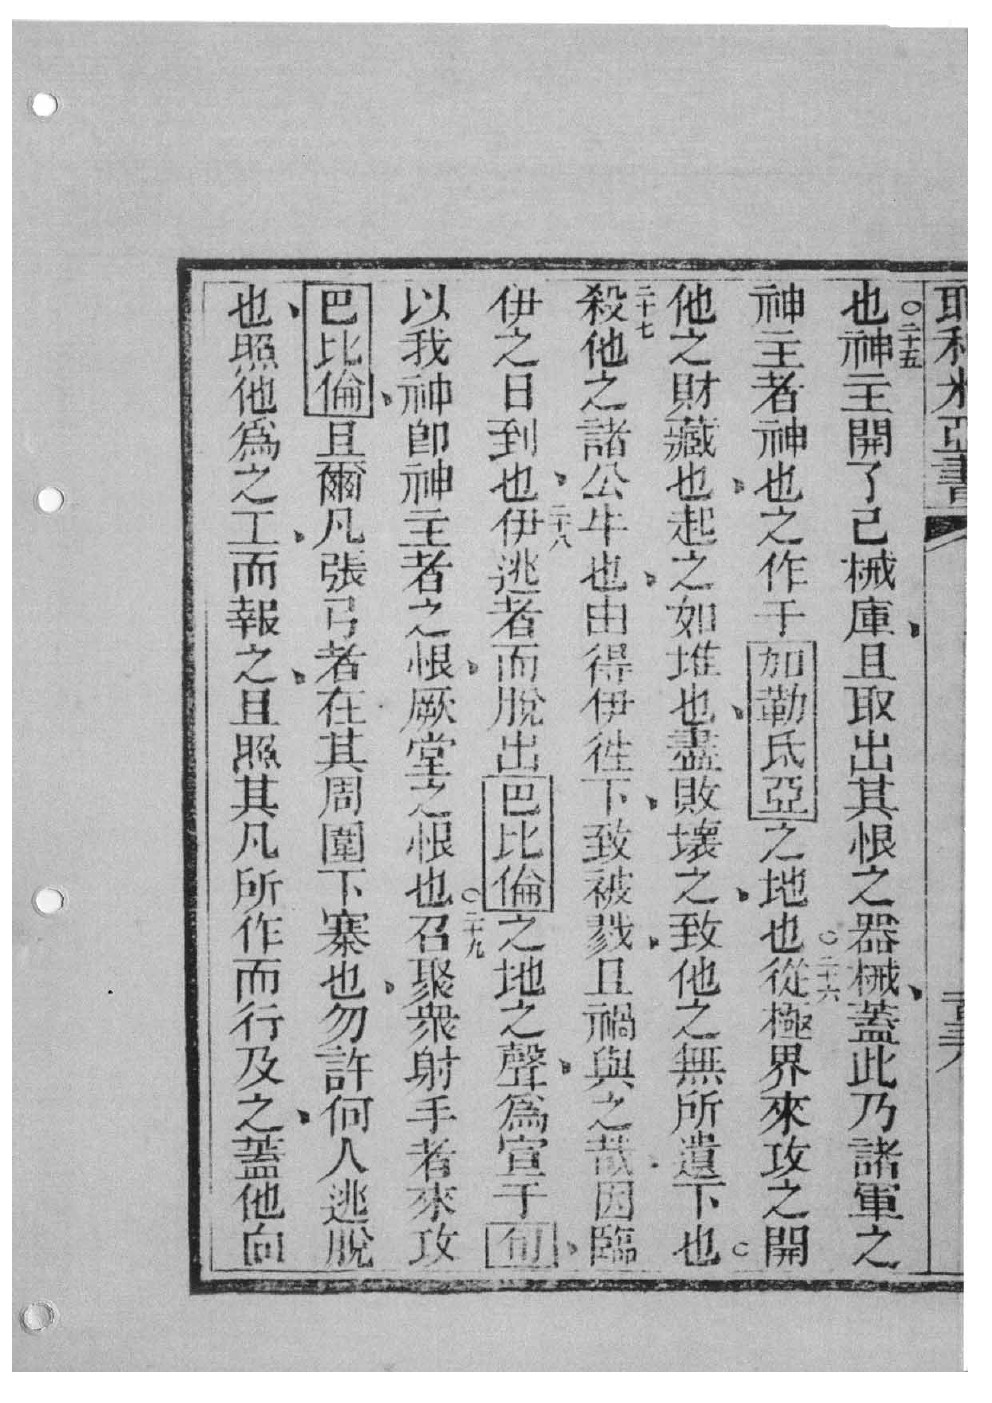 耶利米亞書
也○二十五神主開了己械庫、且取出其恨之器械、蓋此乃諸軍之
神主者神也之作于加勒氐亞之地也○二十六從極界來攻之開
他之財藏也、起之如堆也、盡敗壞之、致他之無所遺下也○
二十七殺他之諸公牛也、由得伊徃下、致被戮、且禍與之哉因臨
伊之日到也、二十八伊逃者而脫出巴比倫之地之聲、爲宣于旬、
以我神卽神主者之恨、厥堂之恨也○二十九召聚衆射手者來攻
巴比倫、且爾凡張弓者在其周圍下寨也、勿許何人逃脫
也、照他爲之工、而報之、且照其凡所作而行及之、蓋他向